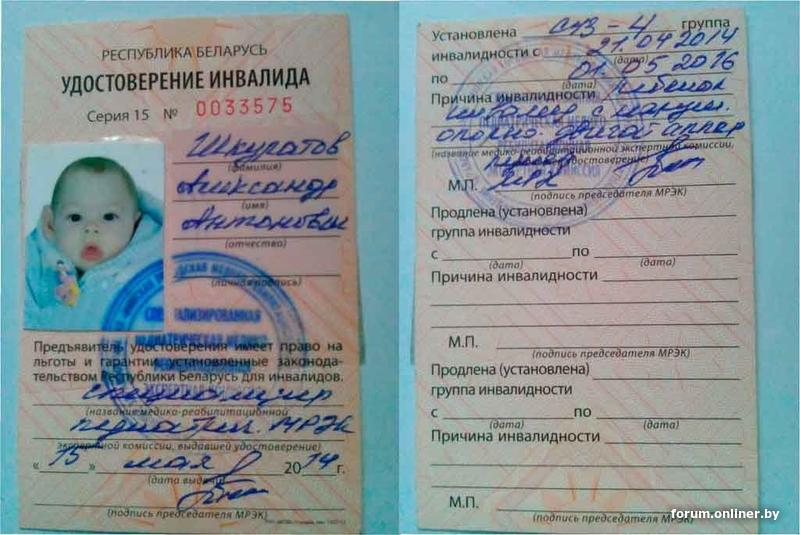 РЕСПУБЛИКА БЕЛАРУСЬ
УДОСТОВЕРЕНИЕ ИНВАЛИДА
Серия 15 № 0033575
Шкуратов
(фамилия)
Александр
(имя)
Антонович
(отчество)
(личная подпись)
Предъявитель удостоверения имеет право на
льготы и гарантии, установленные законода-
тельством Республики Беларусь для инвалидов.
(название медико-реабилитационной
педиатрич. МРЭК
экспертной комиссии, выдавшей удостоверение)
«15» мая 2014 г.
(дата выдачи)
(подпись председателя МРЭК)
Установлена СУЗ-4 группа
инвалидности с 21.04 2014
(дата)
по 01.05 2016
(дата)
Причина инвалидности ребенок
инвалид с наруш.
опорно-двигат. аппар
(название медико-реабилитационной экспертной комиссии,
удостоверение)
М.П.
(подпись председателя МРЭК)
Продлена (установлена)
группа инвалидности
с по
(дата) (дата)
Причина инвалидности
М.П.
(подпись председателя МРЭК)
Продлена (установлена)
группа инвалидности
с по
(дата) (дата)
Причина инвалидности
М.П.
(подпись председателя МРЭК)
forum.onliner.by